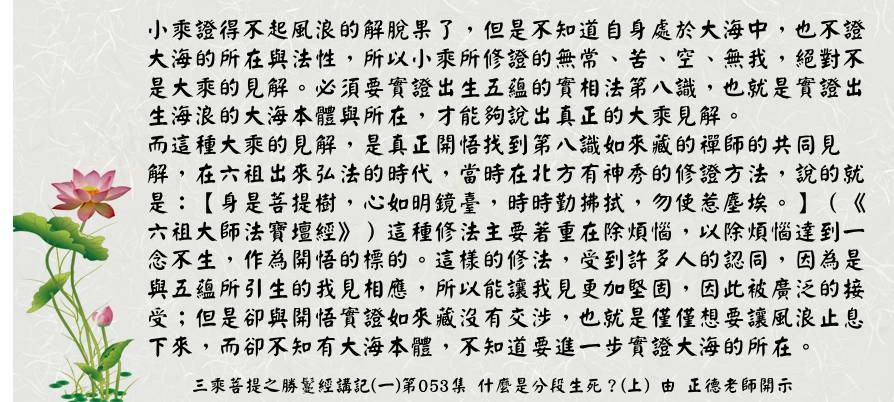 小乘證得不起風浪的解脫果了，但是不知道自身處於大海中，也不證
大海的所在與法性，所以小乘所修證的無常、苦、空、無我，絕對不
是大乘的見解。必須要實證出生五蘊的實相法第八識，也就是實證出
生海浪的大海本體與所在，才能夠說出真正的大乘見解。
而這種大乘的見解，是真正開悟找到第八識如來藏的禪師的共同見
解，在六祖出來弘法的時代，當時在北方有神秀的修證方法，說的就
是：【身是菩提樹，心如明鏡臺，時時勤拂拭，勿使惹塵埃。】（《
六祖大師法寶壇經》）這種修法主要著重在除煩惱，以除煩惱達到一
念不生，作為開悟的標的。這樣的修法，受到許多人的認同，因為是
與五蘊所引生的我見相應，所以能讓我見更加堅固，因此被廣泛的接
受；但是卻與開悟實證如來藏沒有交涉，也就是僅僅想要讓風浪止息
下來，而卻不知有大海本體，不知道要進一步實證大海的所在。
三乘菩提之勝鬘經講記(一)第053集 什麼是分段生死？(上) 由 正德老師開示